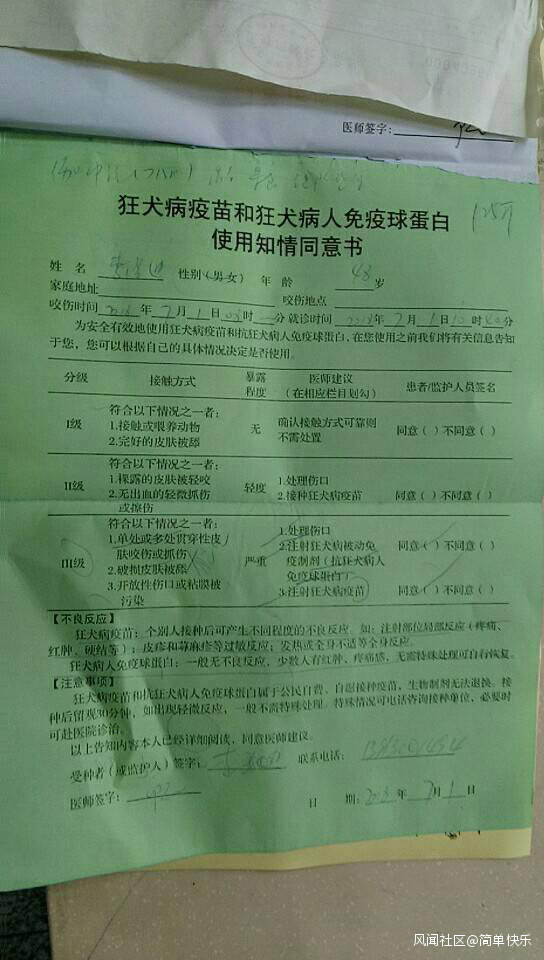 医师签字：
狂犬病疫苗和狂犬病人免疫球蛋白
使用知情同意书
姓 名 性别（男 女） 年 龄 48 岁
家庭地址
咬伤地点
咬伤时间 2018 年 7 月 1 日 时 分 就诊时间 2018 年 7 月 1 日 10 时 分
为安全有效地使用狂犬病疫苗和抗狂犬病人免疫球蛋白，在您使用之前我们将有关信息告知
于您，您可以根据自己的具体情况决定是否使用。
分级 接触方式 暴露程度 医师建议（在相应栏目划勾） 患者/监护人员签名
I级
符合以下情况之一者：
1.接触或喂养动物
2.完好的皮肤被舔
无
确认接触方式可靠则
不需处置
同意（ ）不同意（ ）
II级
符合以下情况之一者：
1.裸露的皮肤被轻咬
2.无出血的轻微抓伤
或擦伤
轻度
1.处理伤口
2.接种狂犬病疫苗
同意（ ）不同意（ ）
III级
符合以下情况之一者：
1.单处或多处贯穿性皮
肤咬伤或抓伤
2.破损皮肤被舔
3.开放性伤口或粘膜被
污染
严重
1.处理伤口
2.注射狂犬病被动免
疫制剂（抗狂犬病人
免疫球蛋白）
3.注射狂犬病疫苗
同意（ ）不同意（ ）
同意（ ）不同意（ ）
【不良反应】
狂犬病疫苗：个别人接种后可产生不同程度的不良反应。如：注射部位局部反应（疼痛、
红肿、硬结等）；皮疹和荨麻疹等过敏反应；发热或全身不适等全身反应。
狂犬病人免疫球蛋白：一般无不良反应，少数人有红肿、疼痛感，无需特殊处理可自行恢复。
【注意事项】
狂犬病疫苗和抗狂犬病人免疫球蛋白属于公民自费、自愿接种疫苗，生物制剂无法退换。接
种后留观30分钟，如出现轻微反应，一般不需特殊处理。特殊情况可电话咨询接种单位，必要时
可赴医院诊治。
以上告知内容本人已经详细阅读，同意医师建议。
受种者（或监护人）签字： 联系电话：
医师签字： 日 期：2018 年 7 月 1 日
风闻社区@简单快乐